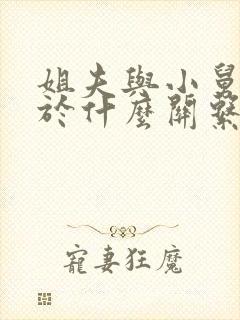 姐夫與小舅
於什麼關繫
寵妻狂魔